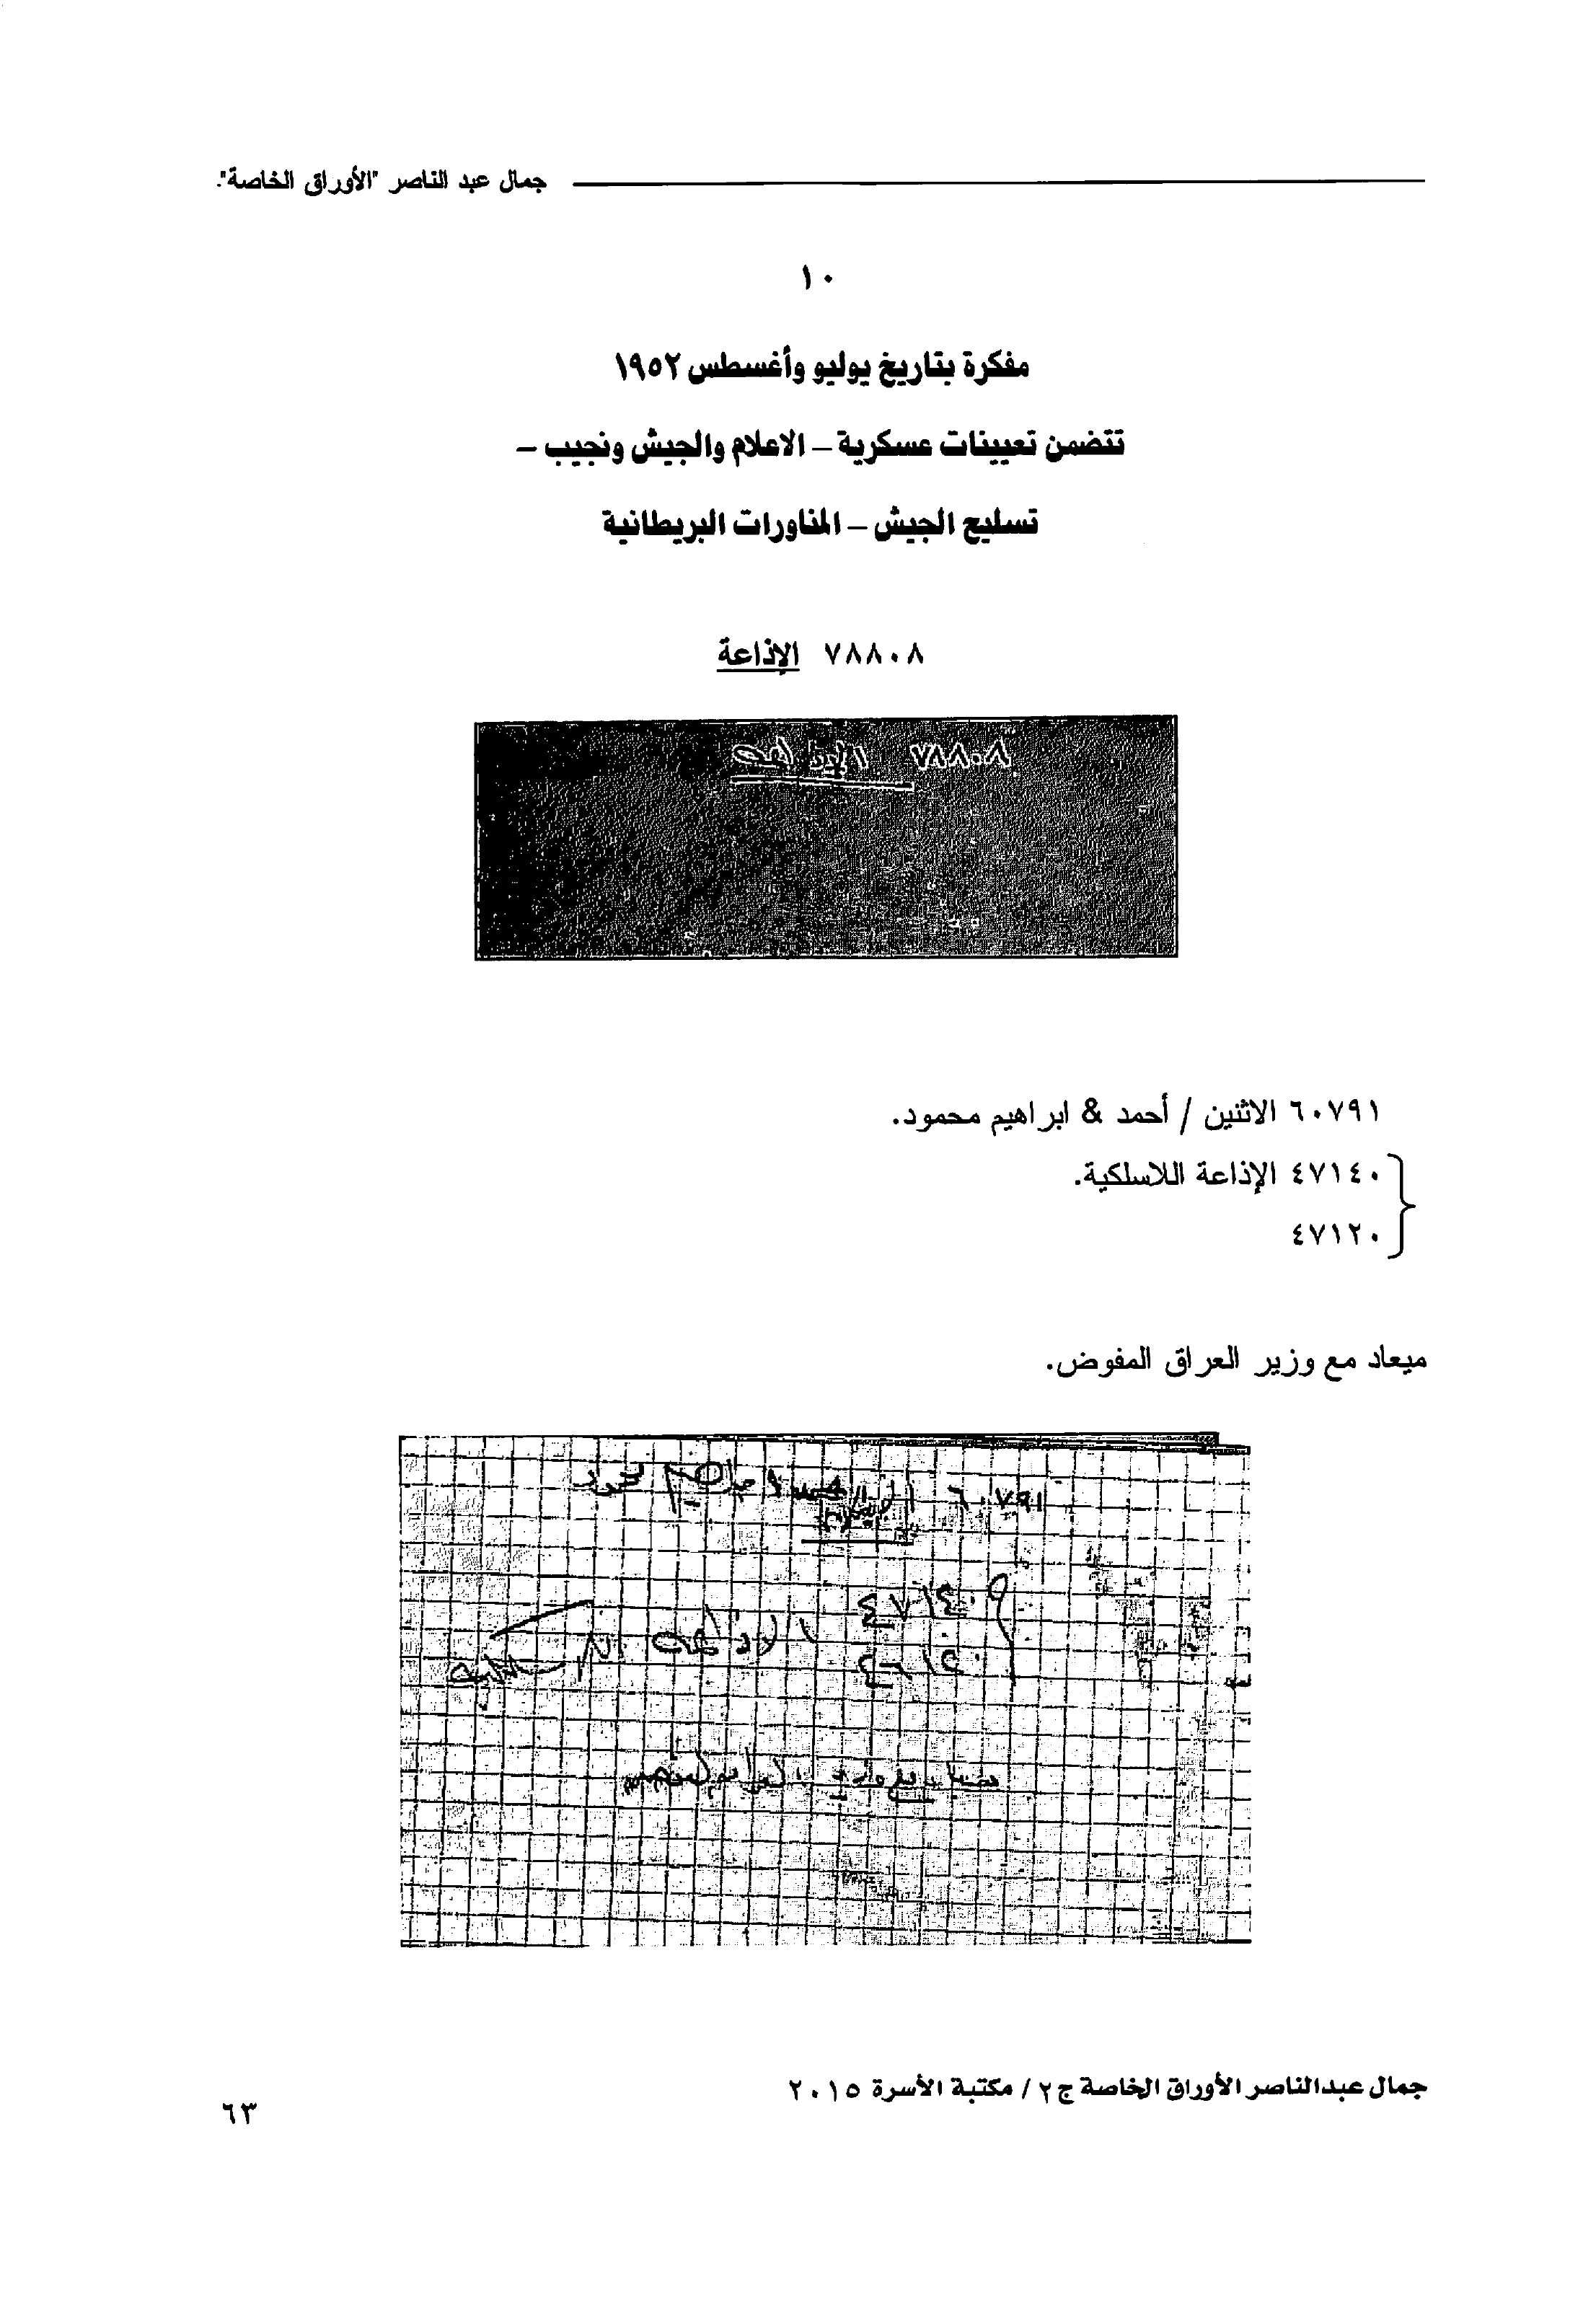 جمال عبد الناصر "الأوراق الخاصة".
١٠
مفكرة بتاريخ يوليو وأغسطس ١٩٥٢
تتضمن تعيينات عسكرية – الاعلام والجيش ونجيب –
تسليح الجيش – المناورات البريطانية
٧٨٨٠٨ الإذاعة
٧٨٨٠٨ الإذاعة
٦٠٧٩١ الاثنين / أحمد & ابراهيم محمود.
٤٧١٤٠ الإذاعة اللاسلكية.
٤٧١٢٠
ميعاد مع وزير العراق المفوض.
٦٠٧٩١ محمود
٤٧١٤٠
الاذاعه
جمال عبدالناصر الأوراق الخاصة ج٢ / مكتبة الأسرة ٢٠١٥
٦٣